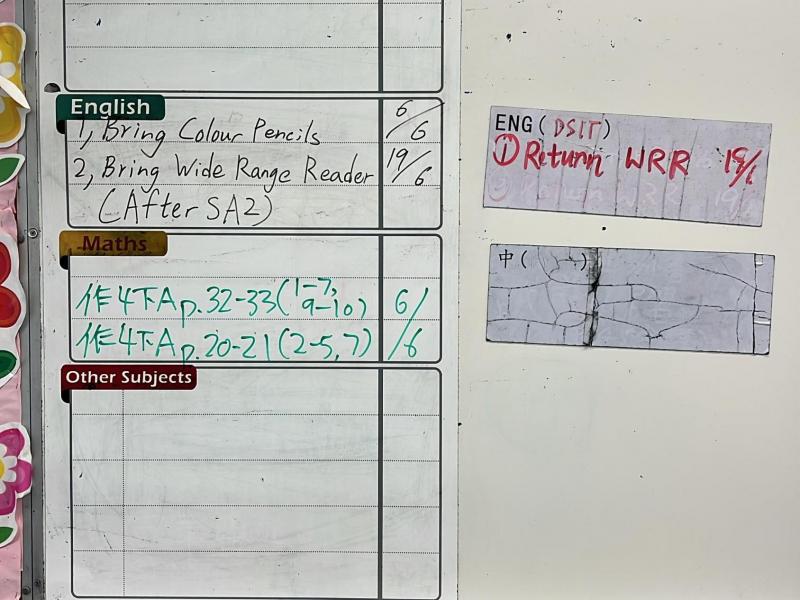 English
1, Bring Colour Pencils 6/6
2, Bring Wide Range Reader 19/6
(After SA2)
Maths
作4下A p.32-33(1-7, 9-10) 6/6
作4下A p.20-21(2-5,7)
Other Subjects
ENG(DSIT)
① Return WRR
中( )